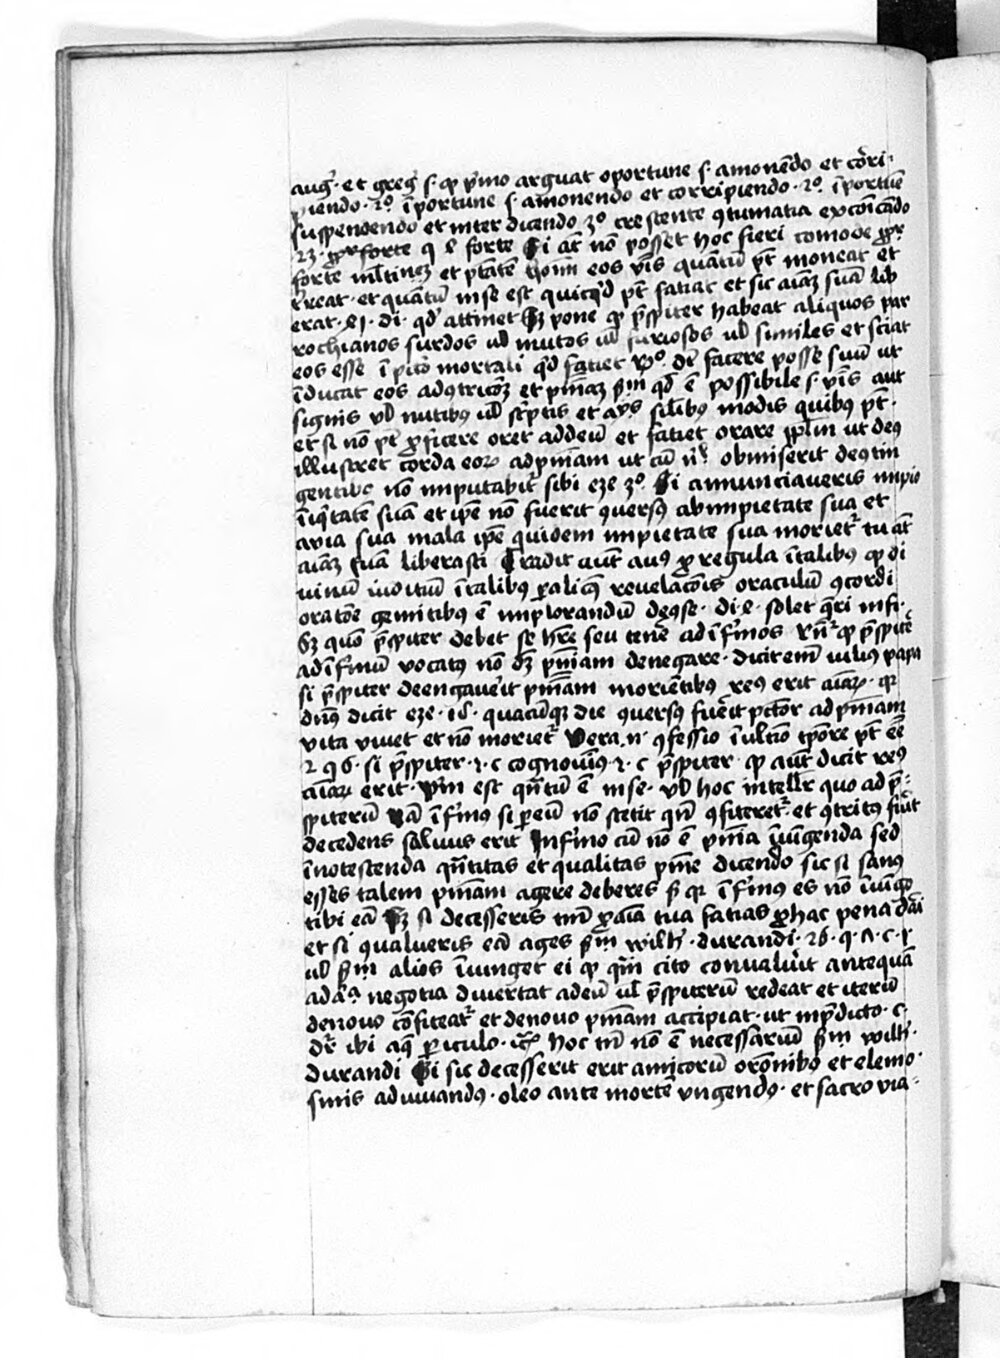 aug̕. et greg̕ s. ꝙ p̄mo arguat oportune s. amonēdo et cōri-
piendo. 2º. īportune s. amonendo et corripiendo. 2º. īportūe
suspendendo et inter dicendo 3º crescente ꝯtumatia excōicādo
forte Si at̄ nō posset hoc fieri comode
forte et eos quātū pt̄ moneat et
t̄reat. et quātū in se est quicq̄d pt̄ fatiat et sic aīaꝫ suā lib
erat. di. qd̄ attinet Sꝫ pone ꝙ p̄sp̄iter habeat aliquos par
rochianos surdos ul̄ mutos ul̄ furiosos ul̄ similes et sciat
eos esse ī pctō mortali qd̄ fatiet Rº. dꝫ facere posse suū ut
īducat eos ad ꝯtricōꝫ et pn̄iaꝫ s̄m qd̄ ē possibile s. aut
signis ul̄ nutibꝰ ul̄ sc̄ptis et silibꝰ modis quibꝰ pt̄.
et si nō pt̄ ꝓficere oret ad deū et fatiet orare pplm̄ ut deꝰ
illustret corda eoꝝ ad pn̄iam ut cū obmiserit
gentibꝰ nō imputabit̄ sibi eze 3º. Si annunciaveris impio
īiq̄tatē suā et ip̄e nō fuerit ꝯversꝰ ab impietate sua et
a via sua mala ip̄e quidem impietate sua moriet̄ tu at̄
aīaꝫ tuā liberasti Tradit aut̄ auꝰ ꝓ regula ī talibꝰ ꝙ di
vinū iuditiū ī talibꝰ ꝑ aliq̄ revelacōis oraculū ꝯcordi
oratōe gemitibꝰ ē implorandū di. solet q̄ri
Sꝫ quō p̄sp̄iter debet se h̄re seu tenē ad īfirmos ꝙ p̄sp̄iter
ad īfirmū vocatꝰ nō dꝫ pn̄iam denegare. dicit em̄ iuliꝰ papa
si p̄sp̄iter deengaverit pn̄iam moriētibꝰ reꝰ erit aīaꝝ. qꝛ
dn̄s dicit eze. 18. quacūqꝫ die ꝯversꝰ fuerit pctōr ad pn̄iam
vita vivet et nō moriet̄ Vera .n. ꝯfessio ī ultio tp̄ore pt̄ eē
2 q 6. si p̄sp̄iter. 2. c cognovimꝰ 2. c p̄sp̄iter. ꝙ aut̄ dicit reꝰ
aīaꝝ erit. vm̄ est qn̄tū ē in se. ul̄ hoc intelligit̄ quo ad p̄-
sp̄iterū Nā īfirmꝰ si ꝑ eū nō stetit qn̄ ꝯfiteret̄. et ꝯtritꝰ fuit
decedens salvus erit Infirmo cū nō ē pn̄ia īiūgenda sed
īnotescenda qn̄titas et qualitas pn̄ie dicendo sic si sanꝰ
esses talem pn̄iam agere deberes s̄ qꝛ īfirmꝰ es nō īiūgo
tibi eā Sꝫ si decesseris tm̄ ꝓ aīa tua fatias ꝓ hac pena dari
et si ꝯvalueris eā ages s̄m wilh̄. durandi. 26. q. c.
ul̄ s̄m alios īiunget ei ꝙ qm̄ cito convaluit antequā
ad negotia divertat ad eū ul̄ p̄sp̄iterū redeat et iterū
denovo cōfiteat̄ et denovo pn̄iam accipiat. ut in p̄dicto. c.
dr̄ ibi aq̄ ꝑiculo. hoc tm̄ nō ē necessariū s̄m wilh̄.
durandi Si sic decesserit erit amicorū orōnibꝰ et elemo-
sinis adiuvandꝰ. oleo ante mortē ungendꝰ. et sacro via-